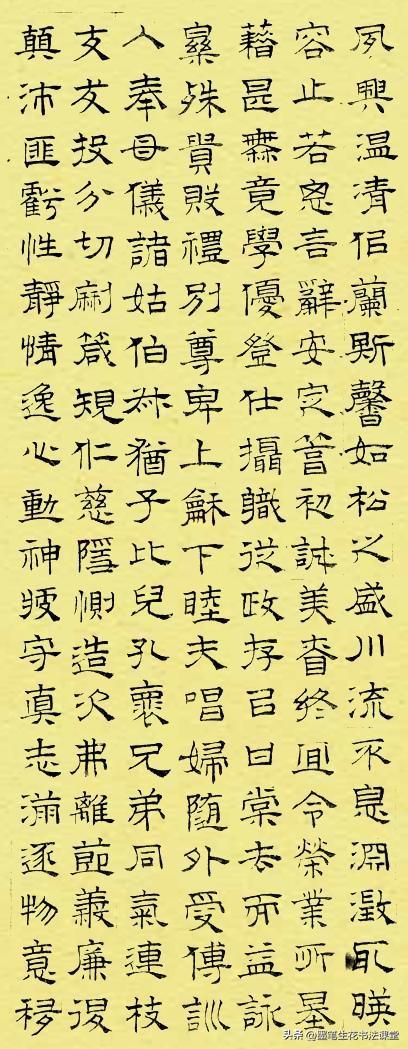 夙興温凊佀蘭斯馨如松之盛川流不息淵澂取暎
容止若思言辭安定篤初誠美眘終宜令榮業所基
藉甚無竟學優登仕攝職從政存以甘棠去而益詠
樂殊貴賤禮別尊卑上龢下睦夫唱婦隨外受傅訓
入奉母儀諸姑伯叔猶子比兒孔懷兄弟同氣連枝
交友投分切磨箴規仁慈隱惻造次弗離節義廉退
顛沛匪虧性靜情逸心動神疲守真志滿逐物意移
头条 @墨笔生花书法课堂